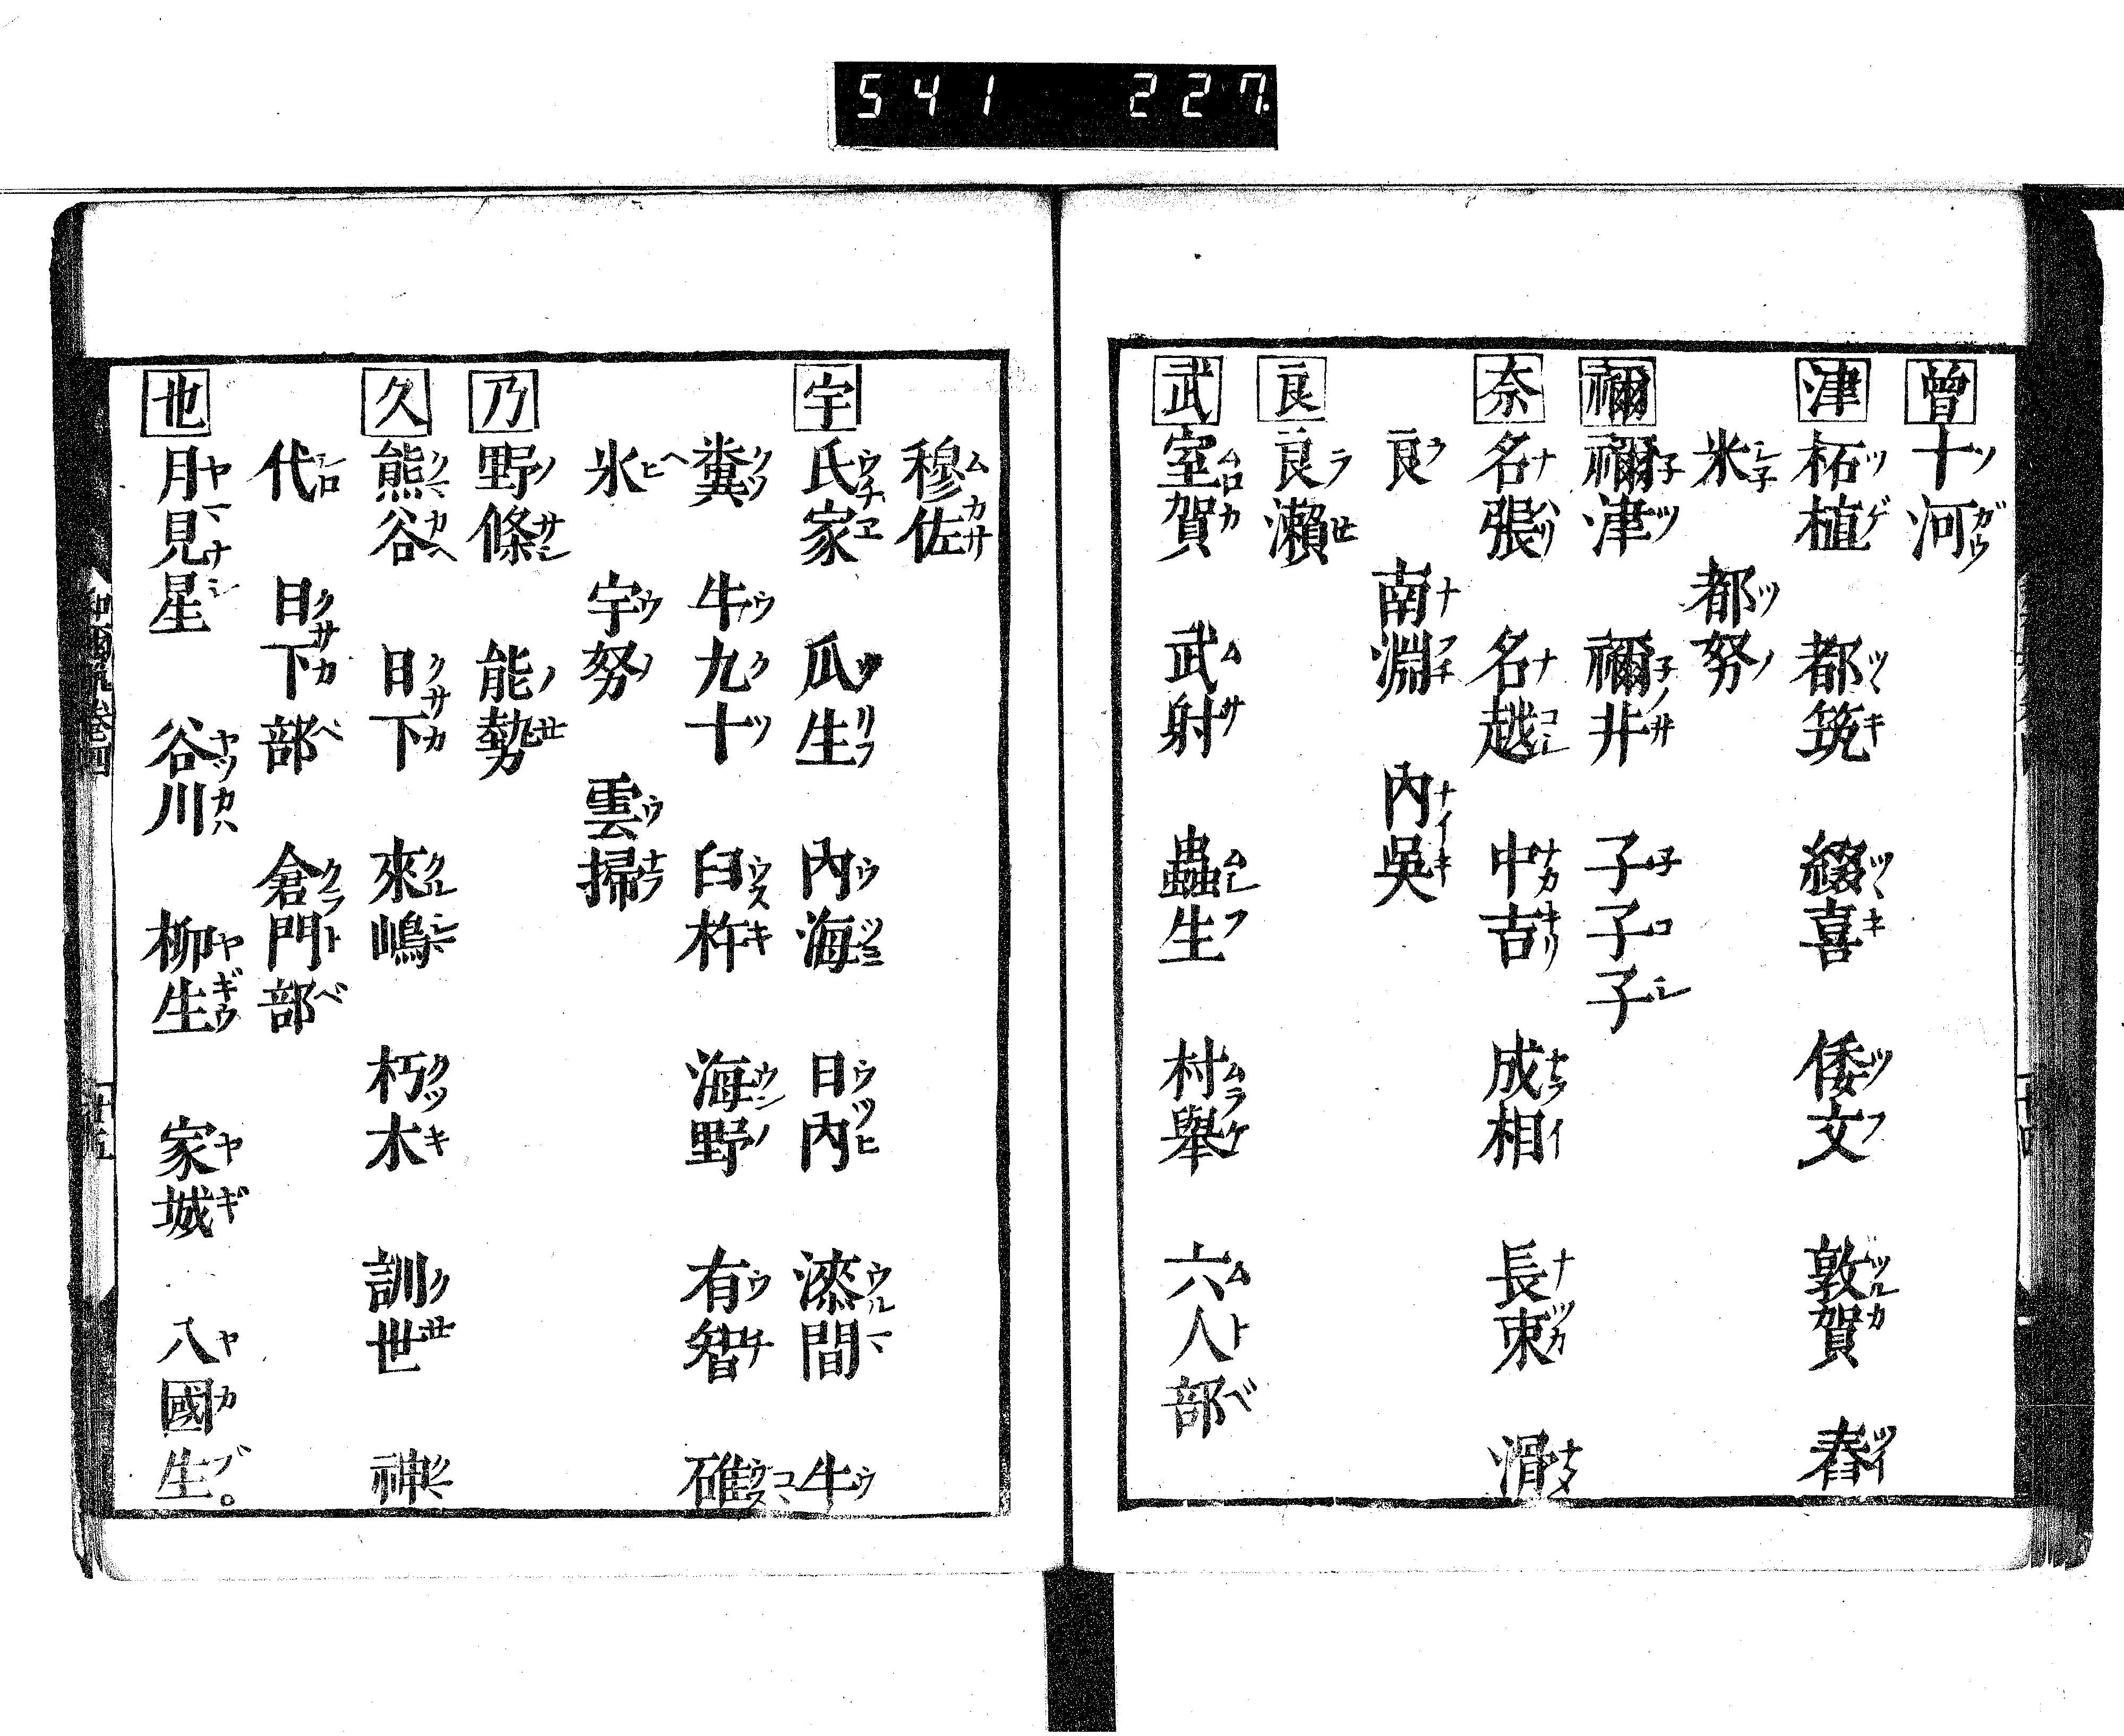 541 227
曾 十河
津 柘植 都筑 綴喜 倭文 敦賀 舂
米 都努
禰 禰津 禰井 子子子
奈 名張 名越 中吉 成相 長束 滑
良 南淵 內吳
良 良瀨
武 室賀 武射 蟲生 村舉 六人部
穆佐
宇 氏家 瓜生 內海 日內 漆間 牛
糞 牛九十 臼杵 海野 有智 碓
氷 宇努 雲掃
乃 野條 能勢
久 熊谷 日下 來嶋 朽木 訓世 神
代 日下部 倉門部
也 月見星 谷川 柳生 家城 八國生。